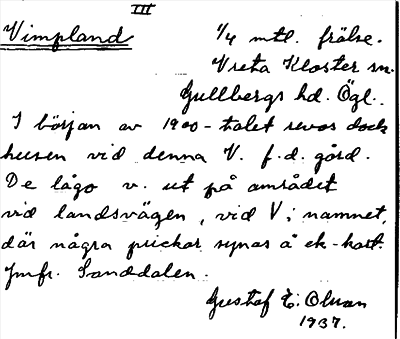 III
Vimpland 1/4 mtl. frälse.
Vreta Kloster sn.
Gullbergs hd. Ögl.
I början av 1900-talet revos dock
husen vid denna V. f.d. gård.
De lågo v. ut på området
vid landsvägen, vid V i namnet,
där några prickar synas å ek-kart.
Jmfr. Sanddalen.
Gustaf E:Olsson
1937.